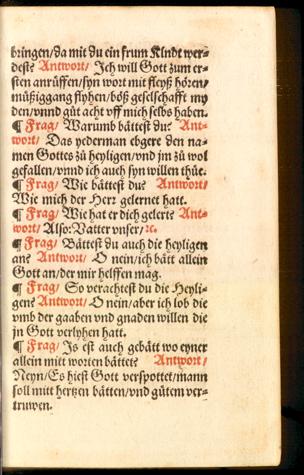 bringen/da mit du ein frum Kindt wer⸗
dest? Antwort/ Ich will Gott zum er⸗
sten anrüffen/syn wort mit fleyß hören/
müßiggang flyhen/böß geselschafft my
den/vnnd güt acht vff mich selbs haben.
¶ Frag/ Warumb bättest du? Ant⸗
wort/ Das yederman ebgere den na⸗
men Gottes zů heyligen/vnd jm zů wol
gefallen/vnnd ich auch syn willen thüe.
¶ Frag/ Wie bättest du? Antwort/
Wie mich der Herr gelernet hatt.
¶ Frag/ Wie hat er dich gelert? Ant⸗
wort/ Also: Vatter vnser/ ꝛc.
¶ Frag/ Bättest du auch die heyligen
an? Antwort/ O nein/ich bätt allein
Gott an/der mir helffen mag.
¶ Frag/ So verachtest du die Heyli⸗
gen? Antwort/ O nein/aber ich lob die
vmb der gaaben vnd gnaden willen die
jn Gott verlyhen hatt.
¶ Frag/ Is est auch gebätt wo eyner
allein mitt worten bättet? Antwort/
Neyn/Es hiest Gott verspottet/mann
soll mitt hertzen bätten/vnd gütem ver⸗
truwen.